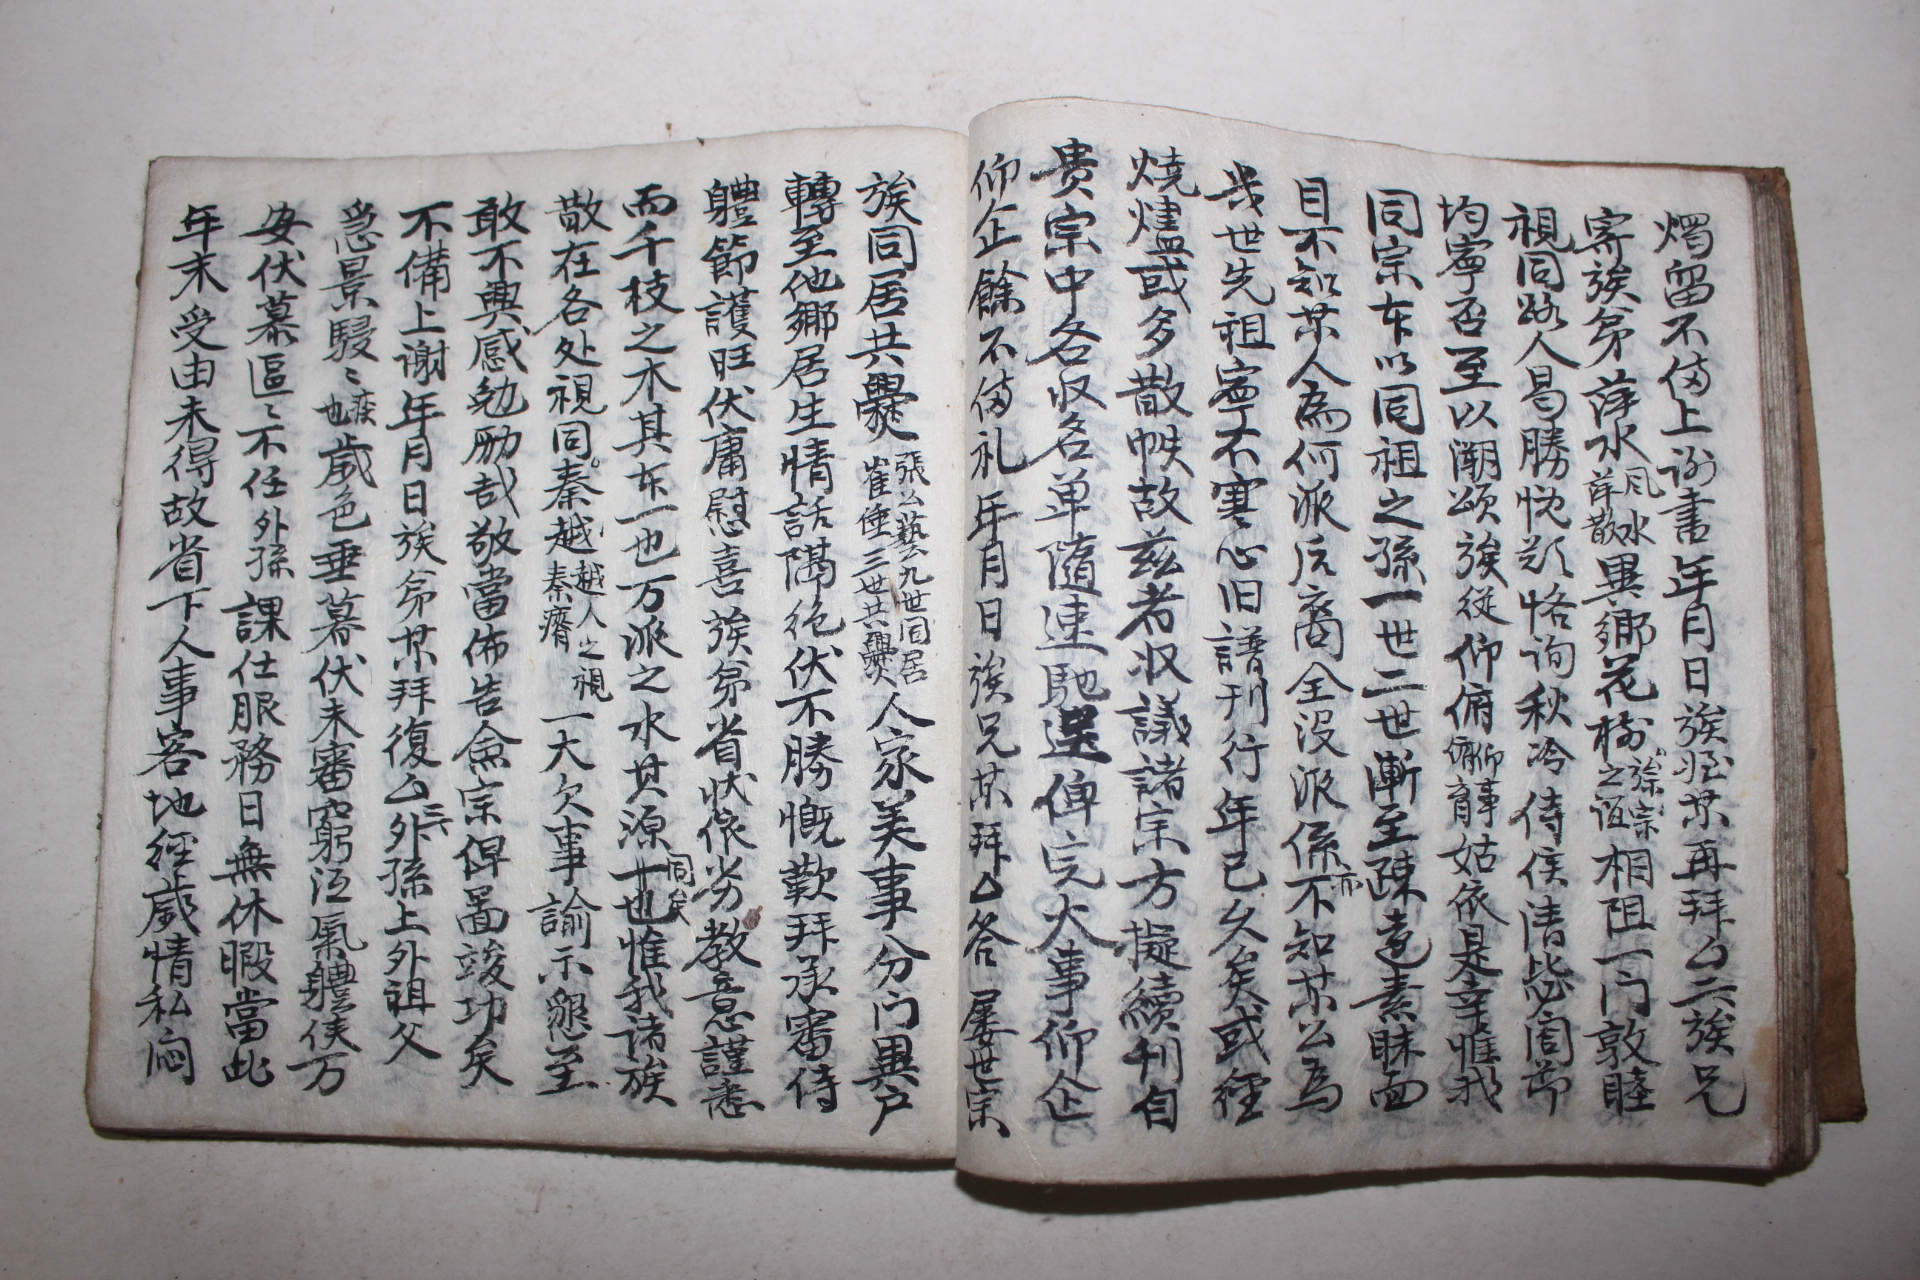 燭留不俻上謝書年月日族侄某再拜△二族兄
寄族弟萍水風水萍散異鄉花樹徐宗之誼相阻一门敦睦
視同路人曷勝忱歎恪詢秋冷侍候淸毖閤节
均寧否至以溯頌族從仰俯仰事俯育姑依是幸惟我
同宗夲以同祖之孫一世二世漸至踈遠素昧面
目不知某人為何派后裔全沒派係亦不知某公爲
幾世先祖寧不寒心旧譜刊行年已久矣或經
燒燼或多散帙故玆者収議諸宗方擬續刊自
贵宗中各収名单隨速馳送俾完大事仰企
仰企餘不俻礼年月日族兄某拜△答屢世宗
族同居共爨張公藝九世同居崔倕三世共爨人家美事分门異户
轉至他鄉居生情話隔絶伏不勝慨歎拜承審侍
軆節護旺伏庸慰喜族弟省狀依劣教意謹悉
而千枝之木其夲一也万派之水其源十也同矣惟我诸族
散在各处視同秦越越人之視秦瘠一大欠事諭示懇至
敢不興感勉勵哉敬當佈告僉宗俾啚竣功矣
不備上謝年月日族弟某拜復△三六外孫上外祖父
急景駸〻疾也歲色垂暮伏未審窮沍氣軆候万
安伏慕區〻不任外孫課仕服務日無休暇當此
年末受由未得故省下人事客地經歲情私悶